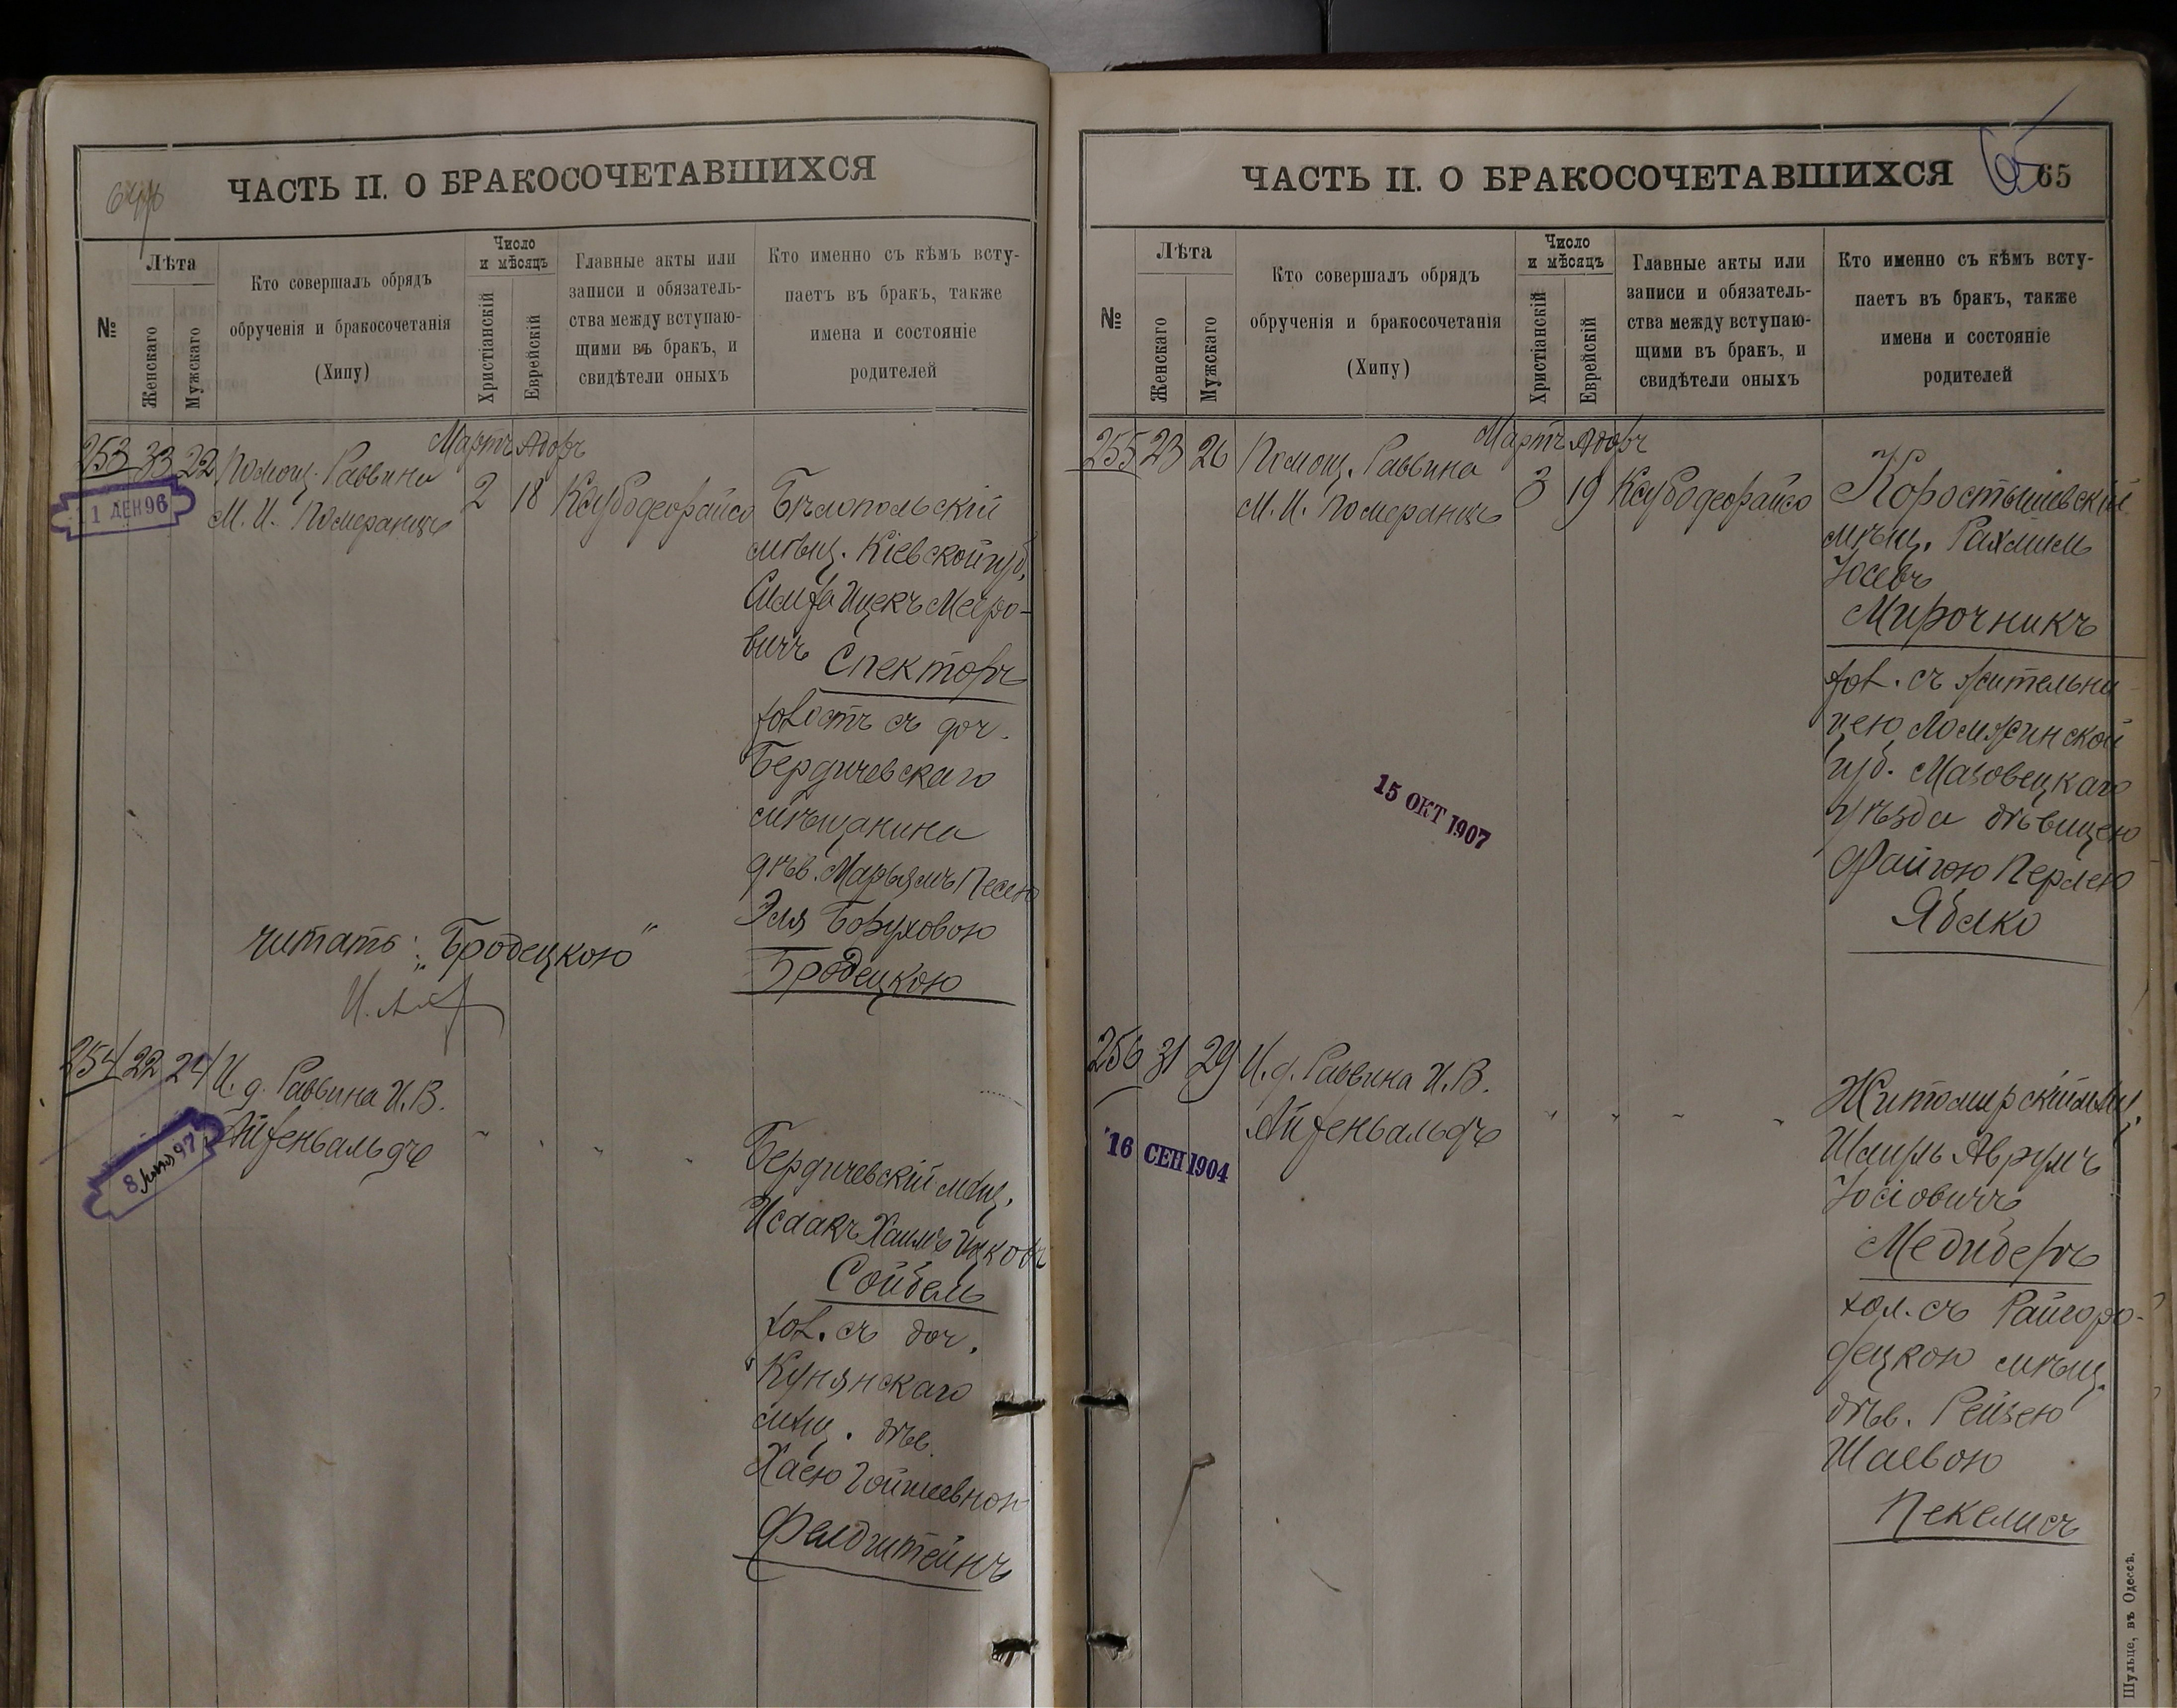 ЧАСТЬ II. О БРАКОСОЧЕТАВШИХСЯ
№
Лѣта
Женскаго
Мужскаго
Кто совершалъ обрядъ
обрученія и бракосочетанія
(Хипу)
Число
и мѣсяцъ
Христіанскій
Еврейскій
Главные акты или
записи и обязатель-
ства между вступаю-
щими въ бракъ, и
свидѣтели оныхъ
Кто именно съ кѣмъ всту-
паетъ въ бракъ, также
имена и состояніе
родителей
253 33 22 Помощ. Раввина
М. И. Померанцъ
11 ДЕК 96
Мартъ Адаръ
2 18
Бѣлопольскій
мѣщ. Кіевской губ.
Ицекъ Мееро-
вичъ Спекторъ
холостъ съ доч.
Бердичевскаго
мѣщанина
дѣв. Марьямъ Песею
Эля Боруховою
Бродецкою
читать: „Бродецкою“
254 22 24 И. д. Раввина И. В.
Айзенвальдъ
8 97
Бердичевскій мѣщ.
Исаакъ Хаимъ Ицковъ
Сойбель
хол. съ доч.
Кунянскаго
мѣщ. дѣв.
Хаею
Фелдштейнъ
ЧАСТЬ II. О БРАКОСОЧЕТАВШИХСЯ
65
65
№
Лѣта
Женскаго
Мужскаго
Кто совершалъ обрядъ
обрученія и бракосочетанія
(Хипу)
Число
и мѣсяцъ
Христіанскій
Еврейскій
Главные акты или
записи и обязатель-
ства между вступаю-
щими въ бракъ, и
свидѣтели оныхъ
Кто именно съ кѣмъ всту-
паетъ въ бракъ, также
имена и состояніе
родителей
255 23 26 Помощ. Раввина
М. И. Померанцъ
Мартъ Адаръ
3 19
Коростышевскій
мѣщ. Рахмиль
Іосевъ
Мирочникъ
хол. съ жительни
цею Ломжинской
губ. Мазовецкаго
уѣзда дѣвицею
Файгою Перлею
Яблко
15 ОКТ 1907
256 31 29 И. д. Раввина И. В.
Айзенвальдъ
16 СЕН 1904
Житомирскій мѣщ.
Шмуль Аврумъ
Іосіовичъ
Медиберъ
хол. съ Райгоро-
децкою мѣщ.
дѣв. Рейзею
Шаевою
Пекелисъ
Шульце, въ Одессѣ.